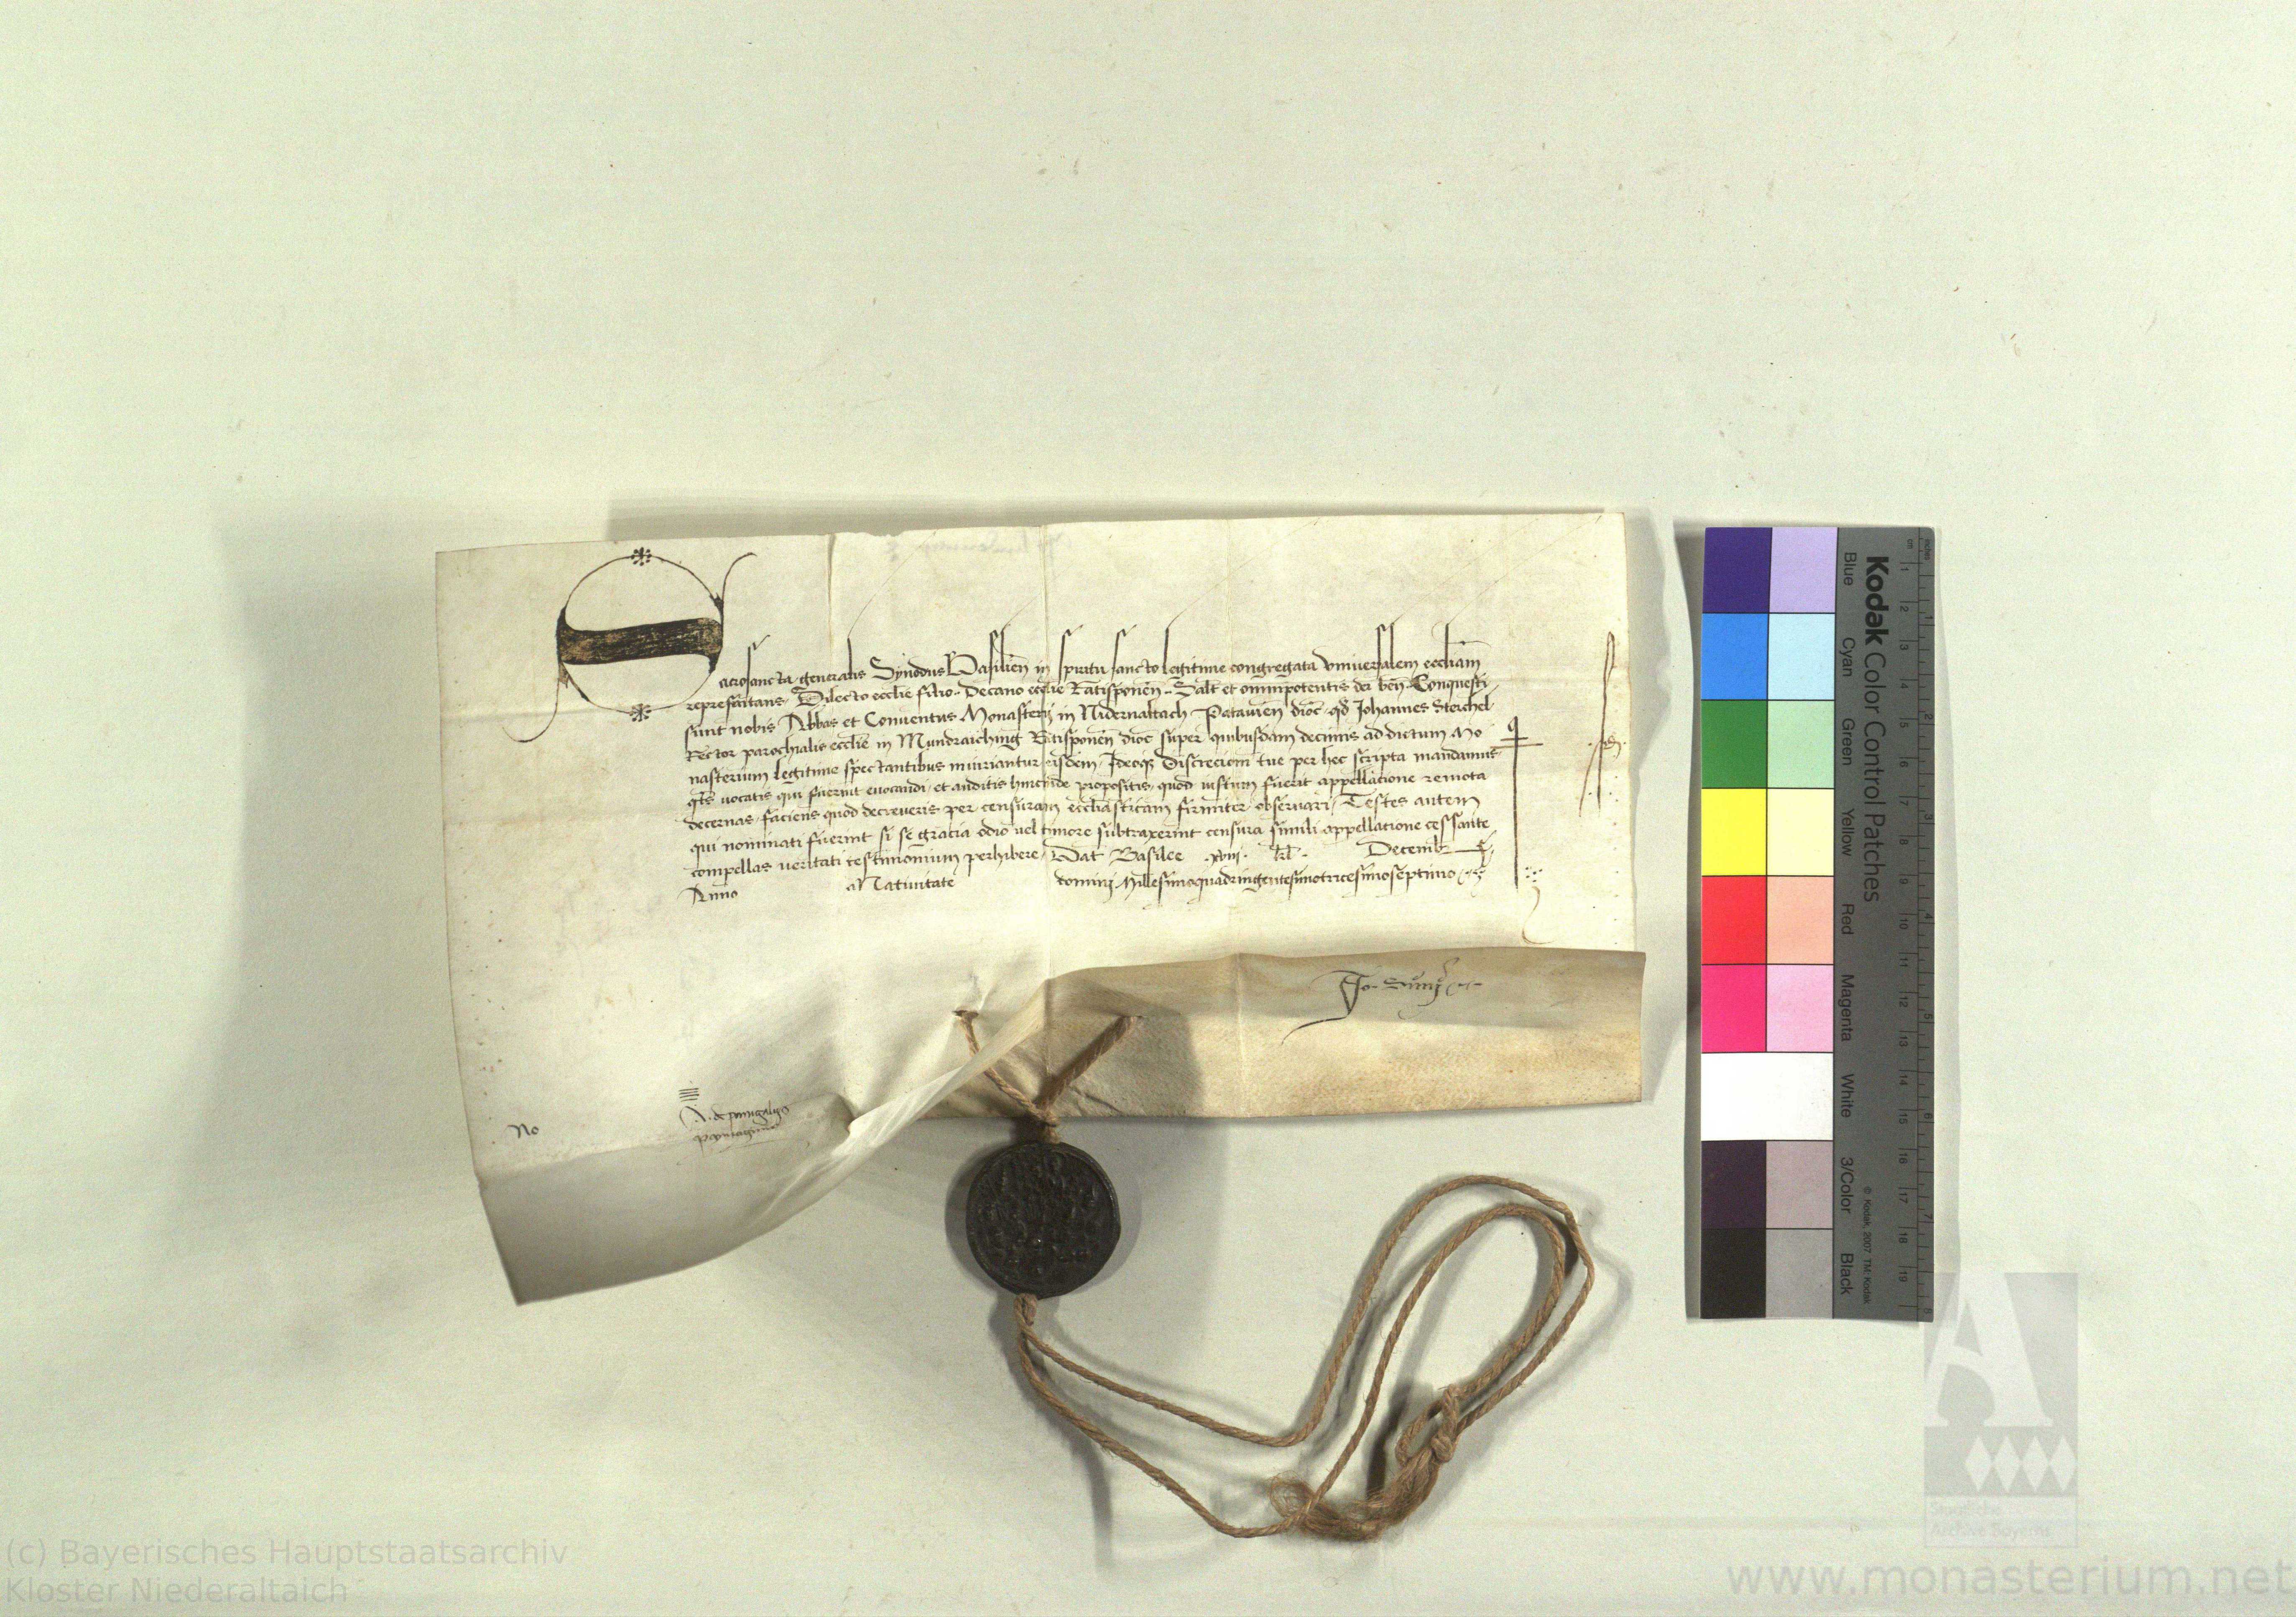 Sacrosancta generalis Sinodus Basilien in spiritu sancto legitime congregata vniuersalem eccliam
represñtans Dilecto ecclie filio Decano ecclie Ratisponeñ Salt et omnipotentis dei beñ Conquesti
sunt nobis Abbas et Conuentus Monasterij in Nidernaltach Patauien dioc qd Johannes Steichel
Rector parochialis ecclie in Mundraiching Ratisponeñ dioc super quibusdam decimis ad dictum Mo
nasterium legitime spectantibus iniuriantur eisdem Ideoqz Discrecioni tue per hec scripta mandamus
qts uocatis qui fuerint euocandi et auditis hincinde propositis quod iustum fuerit appellatione remota
decernas faciens quod decreueris per censuram ecclesiasticam firmiter obseruari Testes autem
qui nominati fuerint si se gracia odio uel timore subtraxerint censura simili appellatione cessante
compellas ueritati testimonium perhibere Dat Basilee xviij kl Decembr
Anno a Natiuitate domini Millesimoquadringentesimotricesimoseptimo
No
A. de
Jo.
Kodak Color Control Patches
Blue Cyan Green Yellow Red Magenta White 3/Color Black
© Kodak, 2007 TM: Kodak
cm 1 2 3 4 5 6 7 8 9 10 11 12 13 14 15 16 17 18 19
inches 1 2 3 4 5 6 7 8
Staatliche
Archive Bayerns
(c) Bayerisches Hauptstaatsarchiv
Kloster Niederaltaich
www.monasterium.net